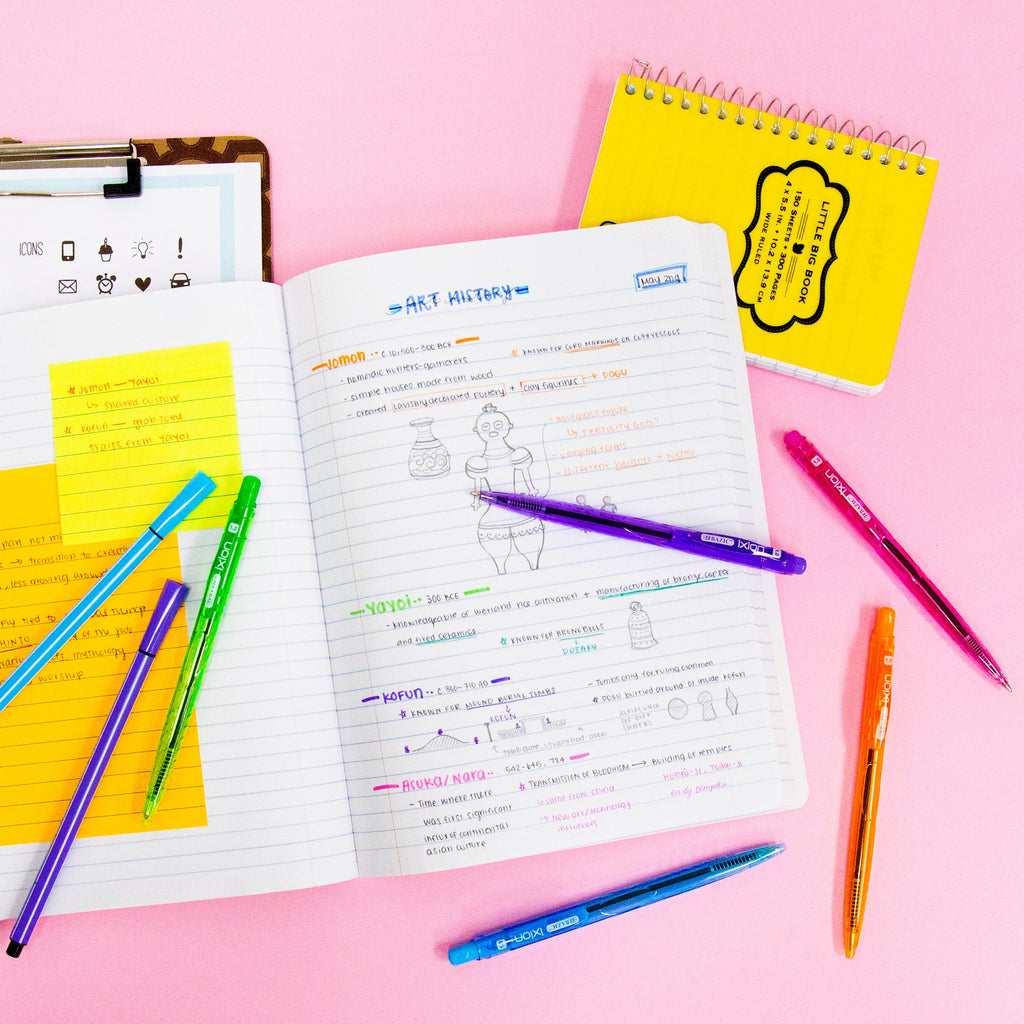 ICONS
LITTLE BIG BOOK
150 SHEETS + 300 PAGES
4 x 5.5 IN. + 10.2 x 13.9 CM
WIDE RULED
ART HISTORY
MAY 2nd
Jomon
- nomadic hunters-gatherers
- simple houses made from wood
- created lavishly decorated pottery + clay figurines → DOGU
KNOWN FOR CORD MARKINGS ON CLAY VESSELS
- Religious figure
↳ FERTILITY GOD?
- varying forms
- different heights +
Yayoi 300 BCE
- knowledgeable of wetland rice cultivation + manufacturing of bronze, copper
and fired ceramics
KNOWN FOR BRONZE BELLS
DOTAKU
KOFUN
KNOWN FOR MOUND BURIAL TOMBS
KOFUN
- Tombs only for ruling clan men
buried around or inside kofun
Asuka/Nara 542-645, 784
- Time where there
was first significant
influx of continental
asian culture
TRANSMISSION OF BUDDHISM → Building of temples
↳ came from China
→ New art/technology
influences
early temples
Jomon — Yayoi
↳ shared culture
kofun — grab some
traits from Yayoi
→ transition to
, less moving around
mythology
worship
BAZIC ixion
BAZIC ixion
BAZIC ixion
ixion
ixion